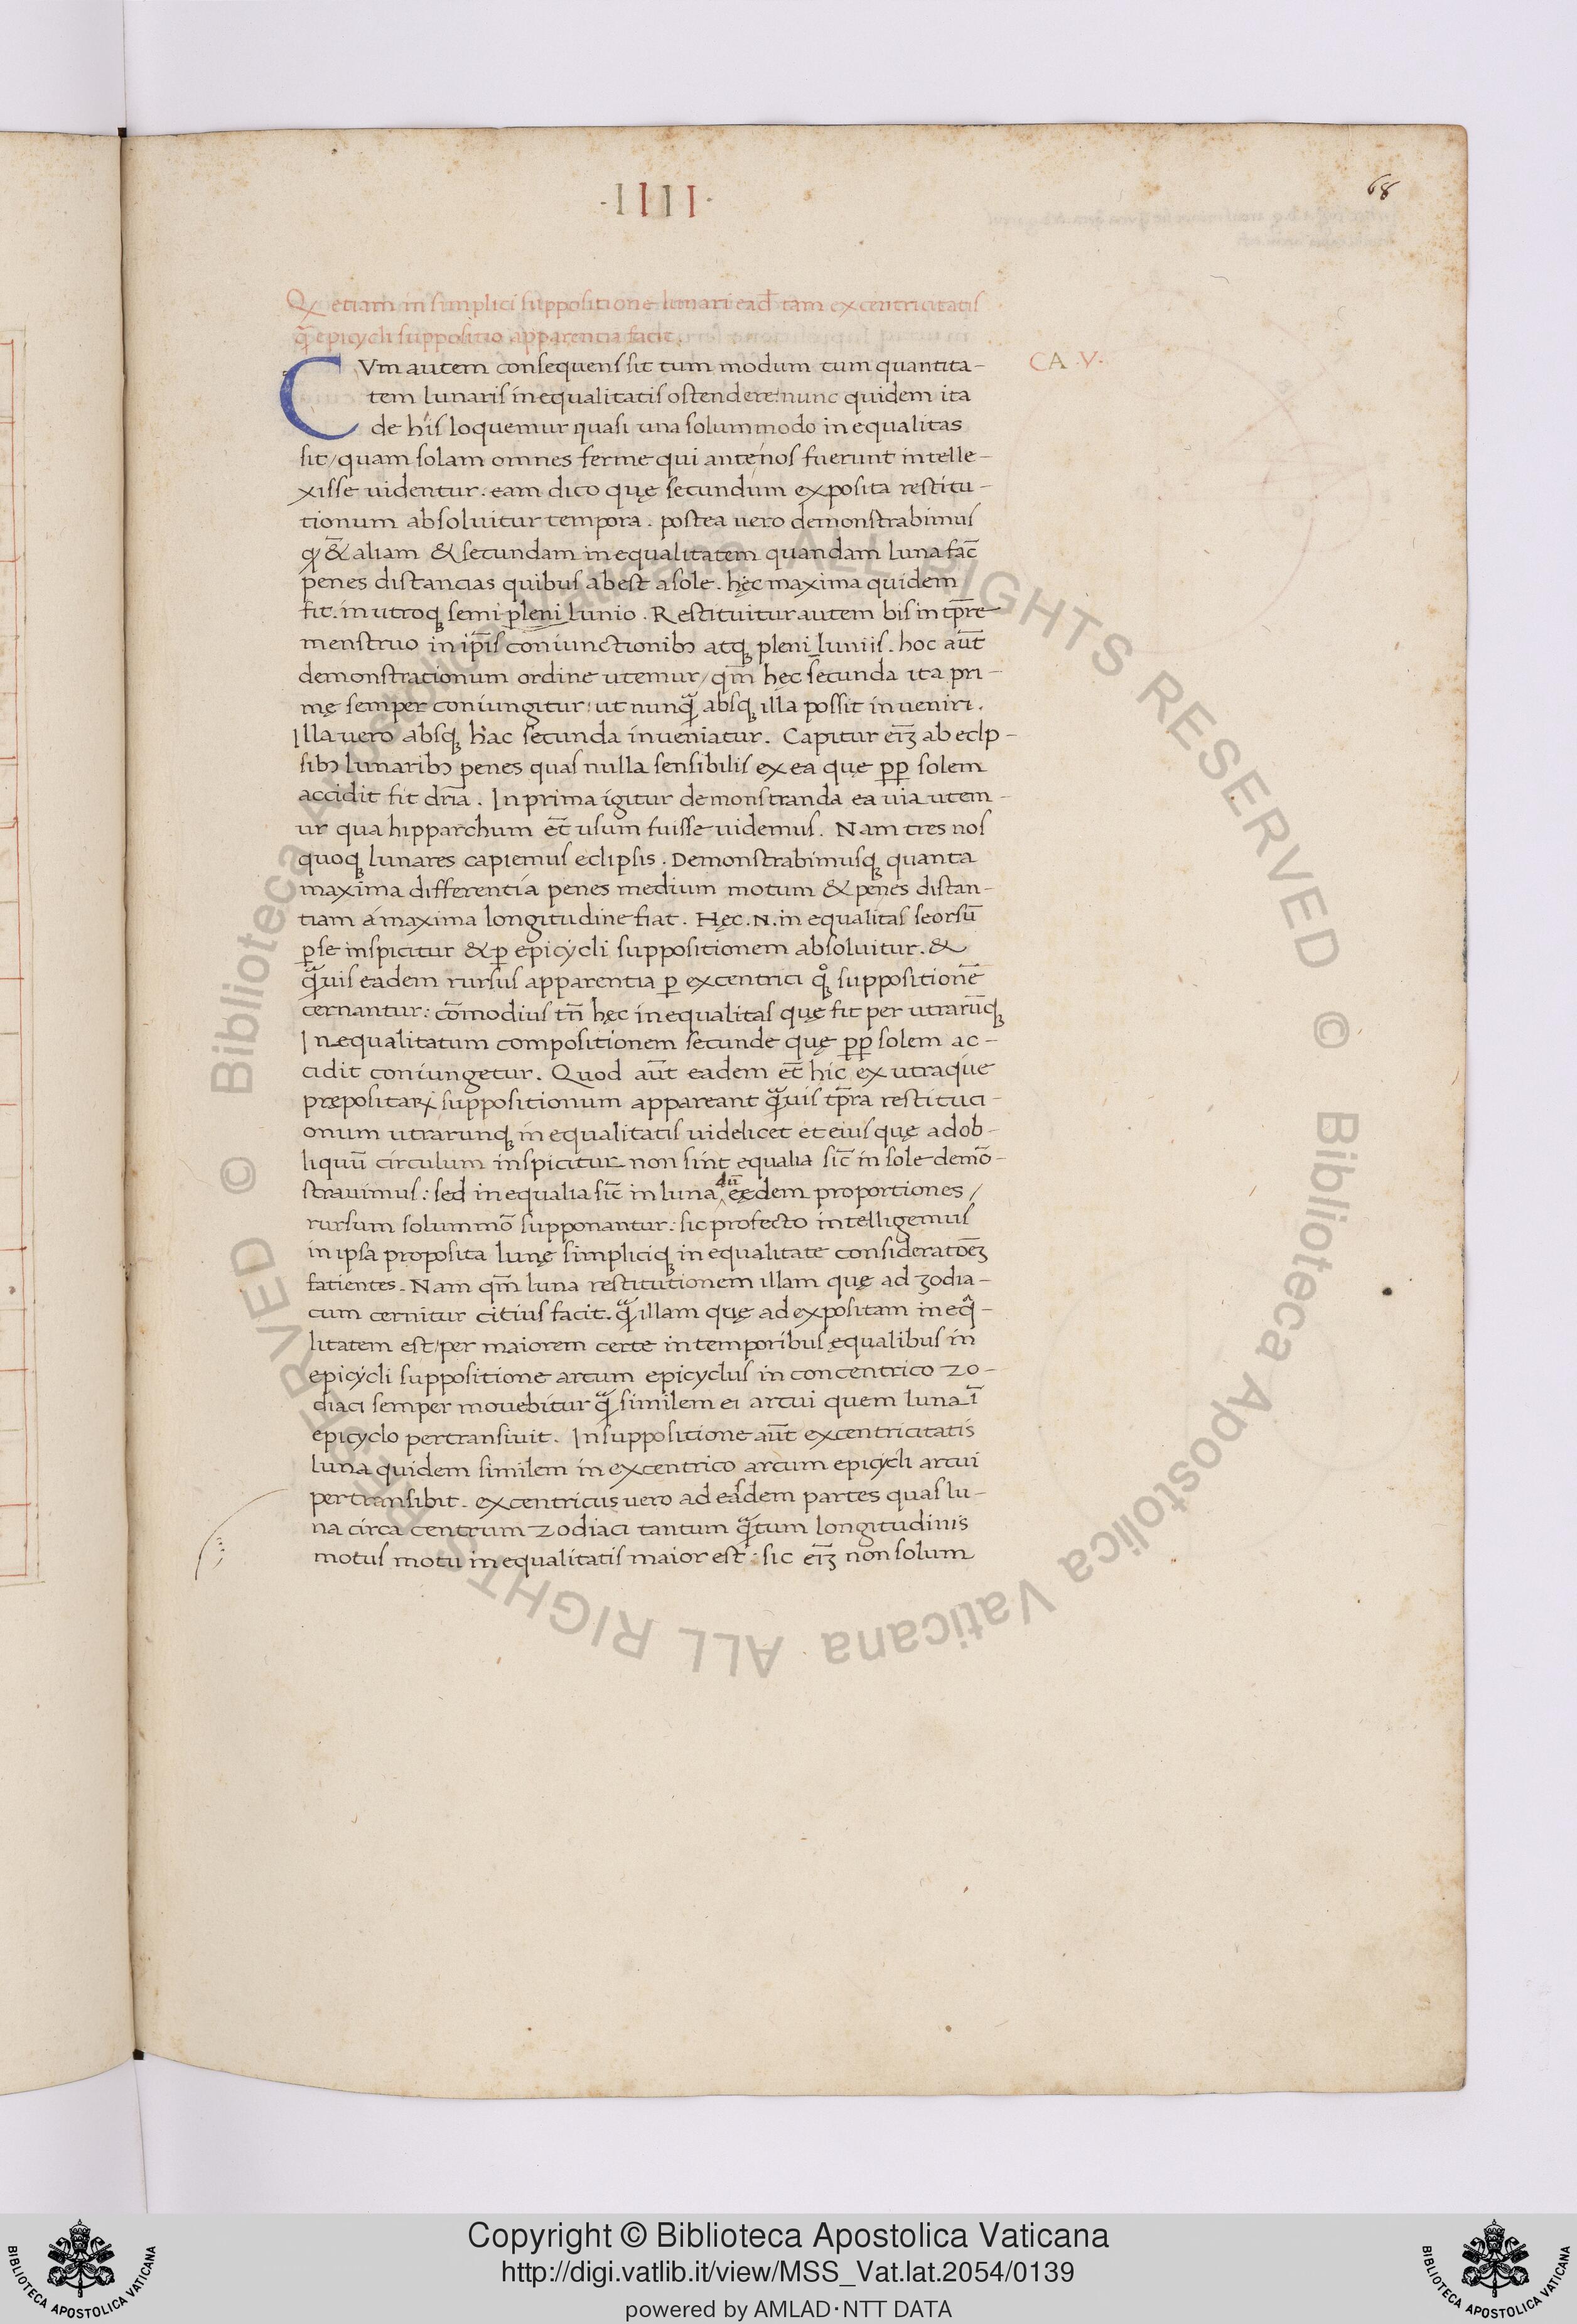 ·IIII·
68
Qꝙ etiam in simplici suppositione lunari ead̄ tam excentricitatis
q̃ꝫ epicycli suppositio apparentia facit.
CA .V.
CVm autem consequens sit tum modum tum quantita-
tem lunaris inequalitatis ostendere: nunc quidem ita
de hiis loquemur quasi una solummodo inequalitas
sit/ quam solam omnes ferme qui ante nos fuerunt intelle-
xisse uidentur. eam dico quę secundum exposita restitu-
tionum absoluitur tempora. postea uero demonstrabimus
ꝙ & aliam & secundam inequalitatem quandam luna fac̄
penes distancias quibus abest a sole. hęc maxima quidem
fit. in utroqꝫ semi plenilunio. Restituitur autem bis in tp̄re
menstruo in ip̄is coniunctionibꝰ atqꝫ pleni luniis. hoc aūt
demonstrationum ordine utemur/ qm̄ hęc secunda ita pri-
mę semper coniungitur: ut nunq̃ absqꝫ illa possit inueniri.
Illa uero absqꝫ hac secunda inueniatur. Capitur eīꝫ ab eclp-
sibꝰ lunaribꝰ penes quas nulla sensibilis ex ea quę ꝓꝑ solem
accidit fit dr̄ia. In prima igitur demonstranda ea uia utem-
ur qua hipparchum et̄ usum fuisse uidemus. Nam tres nos
quoqꝫ lunares capiemus eclipsis. Demonstrabimusqꝫ quanta
maxima differentia penes medium motum & penes distan-
tiam á maxima longitudine fiat. Hęc .N. inequalitas seorsū
ꝑ se inspicitur & ꝑ epicycli suppositionem absoluitur. &
q̃uis eadem rursus apparentia ꝑ excentrici qͦꝫ suppositionē
cernantur: cōmodius tn̄ hęc inequalitas quę fit per utrarūqꝫ
Inequalitatum compositionem secunde quę ꝓꝑ solem ac-
cidit coniungetur. Quod aūt eadem et̄ hic ex utraque
prępositarꝝ suppositionum appareant q̃uis tp̄ra restituci-
onum utrarunqꝫ inequalitatis uidelicet et eius quę ad ob-
liquū circulum inspicitur non sint equalia sic̄ in sole demō-
strauimus: sed inequalia sic̄ in luna dū eędem proportiones/
rursum solummō supponantur: sic profecto intelligemus
in ipsa proposita lunę simpliciqꝫ inequalitate consideratōeꝫ
fatientes. Nam qm̄ luna restitutionem illam quę ad zodia-
cum cernitur citius facit. q̃ illam quę ad expositam ineq̃-
litatem est/ per maiorem certe in temporibus ęqualibus in
epicycli suppositione arcum epicyclus in concentrico zo-
diaci semper mouebitur q̃ similem ei arcui quem luna ī
epicyclo pertransiuit. In suppositione aūt excentricitatis
luna quidem similem in excentrico arcum epicycli arcui
pertransibit. excentricus uero ad easdem partes quas lu-
na circa centrum zodiaci tantum q̃tum longitudinis
motus motu inequalitatis maior est: sic eīꝫ non solum
Copyright © Biblioteca Apostolica Vaticana
http://digi.vatlib.it/view/MSS_Vat.lat.2054/0139
powered by AMLAD·NTT DATA
BIBLIOTECA APOSTOLICA VATICANA
BIBLIOTECA APOSTOLICA VATICANA
© Biblioteca Apostolica Vaticana ALL RIGHTS RESERVED
© Biblioteca Apostolica Vaticana ALL RIGHTS RESERVED